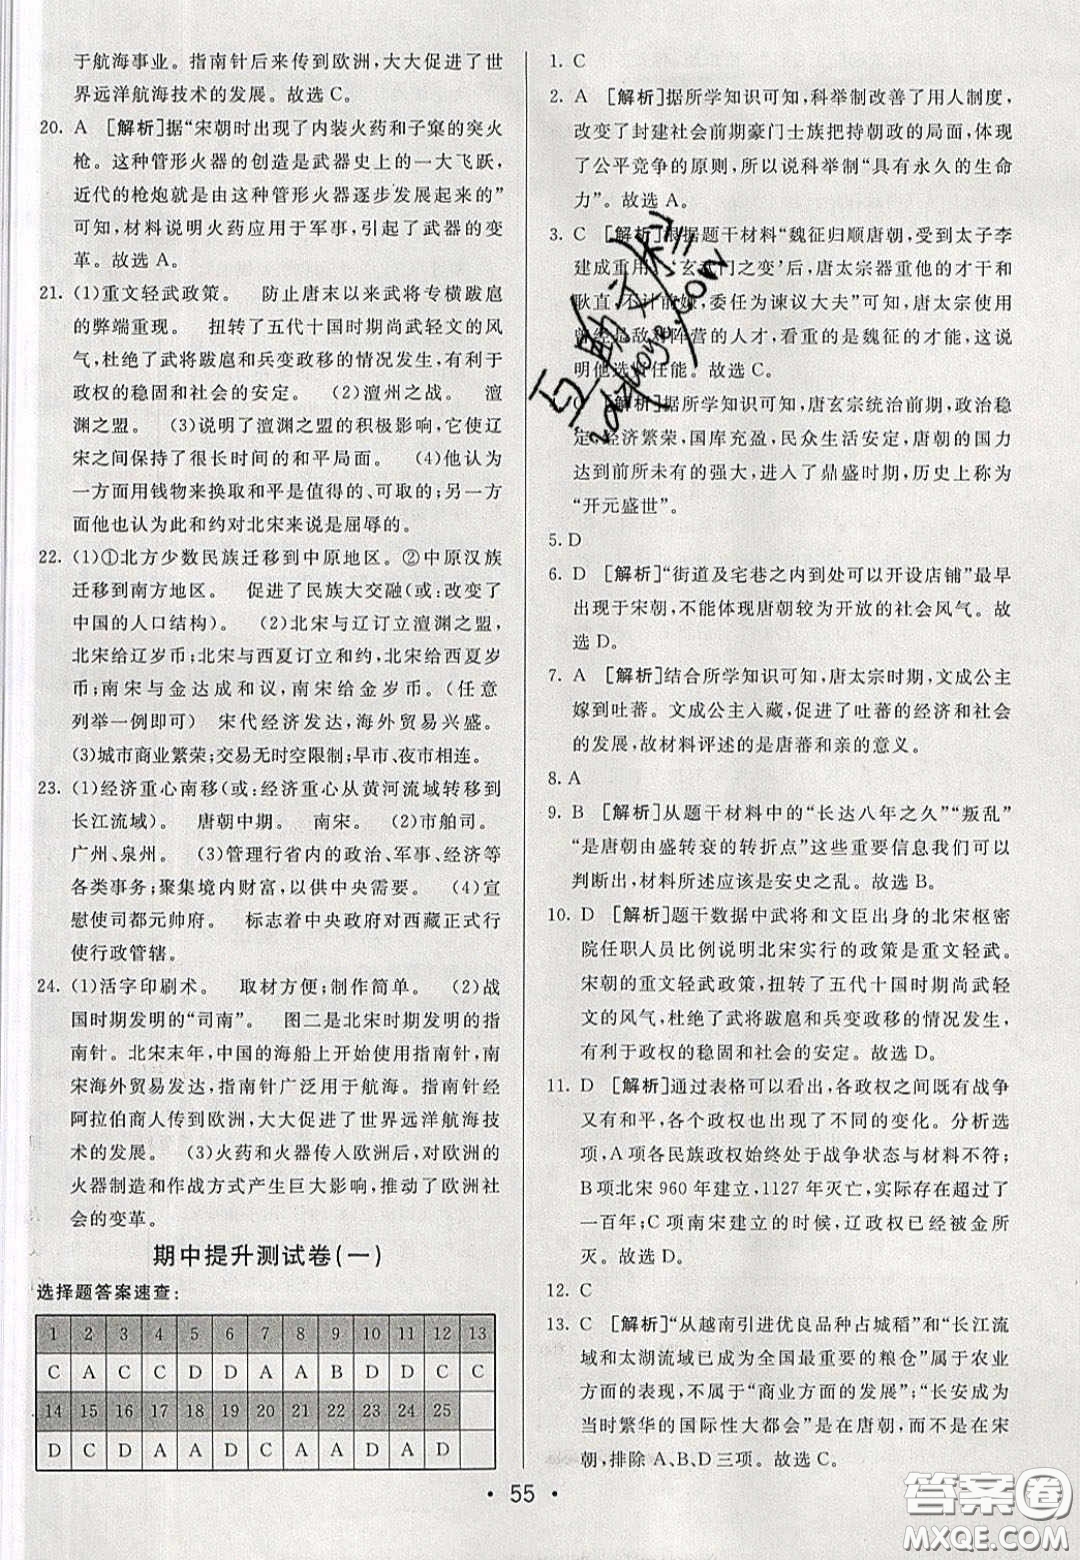 于航海事业。指南针后来传到欧洲,大大促进了世
界远洋航海技术的发展。故选C。
20. A [解析]据“宋朝时出现了内装火药和子窠的突火
枪。这种管形火器的创造是武器史上的一大飞跃,
近代的枪炮就是由这种管形火器逐步发展起来的”
可知,材料说明火药应用于军事,引起了武器的变
革。故选A。
21. (1)重文轻武政策。 防止唐末以来武将专横跋扈
的弊端重现。 扭转了五代十国时期尚武轻文的风
气,杜绝了武将跋扈和兵变政移的情况发生,有利于
政权的稳固和社会的安定。 (2)澶州之战。 澶
渊之盟。 (3)说明了澶渊之盟的积极影响,它使辽
宋之间保持了很长时间的和平局面。 (4)他认为
一方面用钱物来换取和平是值得的、可取的;另一方
面他也认为此和约对北宋来说是屈辱的。
22. (1)①北方少数民族迁移到中原地区。②中原汉族
迁移到南方地区。 促进了民族大交融(或:改变了
中国的人口结构)。 (2)北宋与辽订立澶渊之盟,
北宋给辽岁币;北宋与西夏订立和约,北宋给西夏岁
币;南宋与金达成和议,南宋给金岁币。(任意
列举一例即可) 宋代经济发达,海外贸易兴盛。
(3)城市商业繁荣;交易无时空限制;早市、夜市相连。
23. (1)经济重心南移(或:经济重心从黄河流域转移到
长江流域)。 唐朝中期。 南宋。 (2)市舶司。
广州、泉州。 (3)管理行省内的政治、军事、经济等
各类事务;聚集境内财富,以供中央需要。 (4)宣
慰使司都元帅府。 标志着中央政府对西藏正式行
使行政管辖。
24. (1)活字印刷术。 取材方便;制作简单。 (2)战
国时期发明的“司南”。 图二是北宋时期发明的指
南针。北宋末年,中国的海船上开始使用指南针,南
宋海外贸易发达,指南针广泛用于航海。指南针经
阿拉伯商人传到欧洲,大大促进了世界远洋航海技
术的发展。 (3)火药和火器传入欧洲后,对欧洲的
火器制造和作战方式产生巨大影响,推动了欧洲社
会的变革。
期中提升测试卷(一)
选择题答案速查:
1 2 3 4 5 6 7 8 9 10 11 12 13
C A C C D D A A B D D C C
14 15 16 17 18 19 20 21 22 23 24 25
D C D A A D C A A D A C
1. C
2. A [解析]据所学知识可知,科举制改善了用人制度,
改变了封建社会前期豪门士族把持朝政的局面,体现
了公平竞争的原则,所以说科举制“具有永久的生命
力”。故选A。
3. C [解析]根据题干材料“魏征归顺唐朝,受到太子李
建成重用,‘玄武门之变’后,唐太宗器重他的才干和
耿直,不计前嫌,委任为谏议大夫”可知,唐太宗使用
曾经是敌对阵营的人才,看重的是魏征的才能,这说
明他选贤任能。故选C。
C [解析]据所学知识可知,唐玄宗统治前期,政治稳
定,经济繁荣,国库充盈,民众生活安定,唐朝的国力
达到前所未有的强大,进入了鼎盛时期,历史上称为
“开元盛世”。
5. D
6. D [解析]“街道及宅巷之内到处可以开设店铺”最早
出现于宋朝,不能体现唐朝较为开放的社会风气。故
选D。
7. A [解析]结合所学知识可知,唐太宗时期,文成公主
嫁到吐蕃。文成公主入藏,促进了吐蕃的经济和社会
的发展,故材料评述的是唐蕃和亲的意义。
8. A
9. B [解析]从题干材料中的“长达八年之久”“叛乱”
“是唐朝由盛转衰的转折点”这些重要信息我们可以
判断出,材料所述应该是安史之乱。故选B。
10. D [解析]题干数据中武将和文臣出身的北宋枢密
院任职人员比例说明北宋实行的政策是重文轻武。
宋朝的重文轻武政策,扭转了五代十国时期尚武轻
文的风气,杜绝了武将跋扈和兵变政移的情况发生,
有利于政权的稳固和社会的安定。故选D。
11. D [解析]通过表格可以看出,各政权之间既有战争
又有和平,各个政权也发生了不同的变化。分析选
项,A项各民族政权始终处于战争状态与材料不符;
B项北宋960年建立,1127年灭亡,实际存在超过了
一百年;C项南宋建立的时候,辽政权已经被金所
灭。故选D。
12. C
13. C [解析]“从越南引进优良品种占城稻”和“长江流
域和太湖流域已成为全国最重要的粮仓”属于农业
方面的表现,不属于“商业方面的发展”;“长安成为
当时繁华的国际性大都会”是在唐朝,而不是在宋
朝,排除A、B、D三项。故选C。
• 55 •
答案卷
MXQE.COM